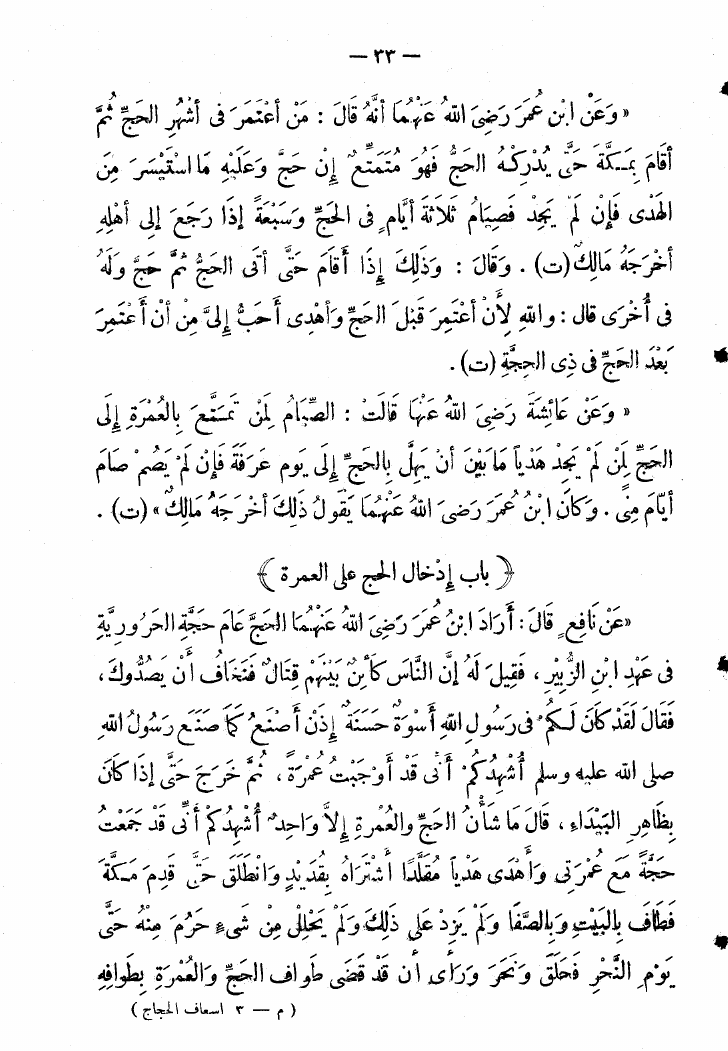 — ٣٣ —
« وَعَنْ ابْنِ عُمَرَ رَضِىَ اللهُ عَنْهُمَا أَنَّهُ قَالَ : مَنْ أعْتَمَرَ فى أشْهُرِ الحَجِّ ثُمَّ
أقَامَ بِمَـكَّةَ حَتَّى يُدْرِكَـهُ الحَجُّ فَهُوَ مُتَمَتِّعٌ إِنْ حَجَّ وَعَلَيْهِ مَا اسْتَيْسَرَ مِنَ
الهَدْى فَإِنْ لَمْ يَجِدْ فَصِيَامُ ثَلاثَةَ أيَّامٍ فى الحَجِّ وَسَبْعَةً إذَا رَجَعَ إلى أهْلِهِ
أخْرَجَهُ مَالِكٌ (ت) . وَقَالَ : وَذَلِكَ إِذَا أقَامَ حَتَّى أتَى الحَجُّ ثُمَّ حَجَّ وَلَهُ
فى أُخْرَى قال : واللهِ لِأَنْ أعْتَمِرَ قَبْلَ الحَجِّ وَأهْدِى أحَبُّ إلىَّ مِنْ أنْ أعْتَمِرَ
بَعْدَ الحَجِّ فى ذِى الحِجَّةِ (ت) .
« وَعَن عَائِشَةَ رَضِىَ اللهُ عَنْهَا قَالَتْ : الصِّيَامُ لِمَنْ تَمَتَّعَ بِالعُمْرَةِ إِلَى
الحَجِّ لِمَنْ لَمْ يَجِدْ هَدْياً مَابَيْنَ أنْ يَهِلَّ بِالحَجِّ إِلَى يَوم عَرَفَةَ فَإِنْ لَمْ يَصُمْ صَامَ
أيّامَ مِنًى . وَكَانَ ابْنُ عُمَرَ رَضىَ اللهُ عَنْهُمَا يَقُولُ ذَلِكَ أخْرَجَهُ مَالِكٌ » (ت) .
﴿ باب إدْخال الحج على العمرة ﴾
« عَنْ نَافِعٍ قَالَ : أرَادَ ابْنُ عُمَرَ رَضِىَ اللهُ عَنْهُمَا الحَجَّ عَامَ حَجَّةِ الحَرُورِيَّةِ
فى عَهْدِ ابْنِ الزُّبَيْرِ ، فَقِيلَ لَهُ إِنَّ النَّاسَ كَأئِنٌ بَيْنَهُمْ قِتَالٌ فَنَخَافُ أنْ يَصُدُّوكَ ،
فَقَالَ لَقَدْ كَانَ لَـكُمْ فى رَسُولِ اللهِ أُسْوَةٌ حَسَنَةٌ إذَنْ أصْنَعُ كَمَا صَنَعَ رَسُولُ اللهِ
صلى الله عليه وسلم أُشْهِدُكُمْ أنِّى قَدْ أوْجَبْتُ عُمْرَةً ، ثُمَّ خَرَجَ حَتَّى إذَا كَانَ
بِظَاهِرِ البَيْدَاءِ ، قَالَ مَا شَأْنُ الحَجِّ والعُمْرةِ إلاَّ وَاحِدٌ أُشْهِدُكُمْ أنِّى قَدْ جَمَعْتُ
حَجَّةً مَع عُمْرَتِى وَأهْدَى هَدْياً مُقَلَّدًا أشْتَرَاهُ بِقُدَيْدٍ وَانْطَلَقَ حَتَّى قَدِمَ مَـكَّةَ
فَطَافَ بِالبَيْتِ وَبِالصَّفَا وَلَمْ يَزِدْ عَلَى ذَلِكَ وَلَمْ يَحْلِلْ مِنْ شَىءٍ حَرُمَ مِنْهُ حَتَّى
يَوْمِ النَّحْرِ فَحَلَقَ وَنَحَرَ وَرَأى أن قَدْ قَضَى طَوافَ الحَجِّ وَالعُمْرَةِ بِطَوافِهِ
( م — ٣ اسعاف الحجاج )